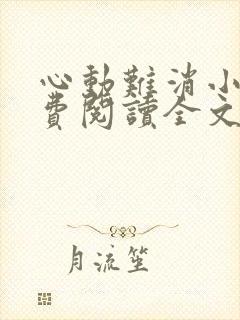 心動難消小
費閱讀全文
月流笙